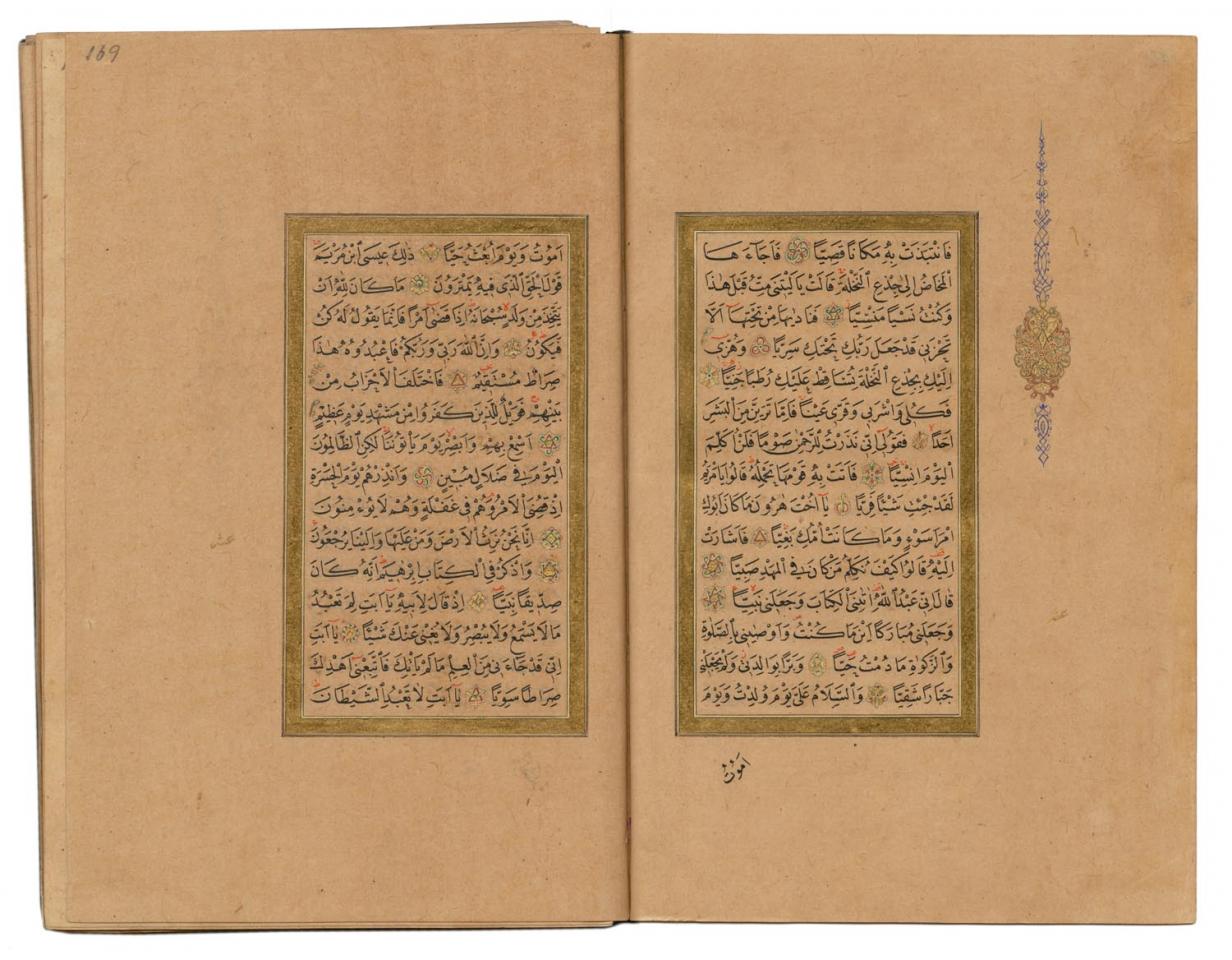 فَانْتَبَذَتْ بِهٖ مَكَانًا قَصِيًّا فَاَجَاءَهَا
الْمَخَاضُ اِلٰى جِذْعِ النَّخْلَةِ قَالَتْ يَا لَيْتَنٖى مِتُّ قَبْلَ هٰذَا
وَكُنْتُ نَسْيًا مَنْسِيًّا فَنَادٰيهَا مِنْ تَحْتِهَا اَلَّا
تَحْزَنٖى قَدْ جَعَلَ رَبُّكِ تَحْتَكِ سَرِيًّا وَهُزّٖى
اِلَيْكِ بِجِذْعِ النَّخْلَةِ تُسَاقِطْ عَلَيْكِ رُطَبًا جَنِيًّا
فَكُلٖى وَاشْرَبٖى وَقَرّٖى عَيْنًا فَاِمَّا تَرَيِنَّ مِنَ الْبَشَرِ
اَحَدًا فَقُولٖى اِنّٖى نَذَرْتُ لِلرَّحْمٰنِ صَوْمًا فَلَنْ اُكَلِّمَ
الْيَوْمَ اِنْسِيًّا فَاَتَتْ بِهٖ قَوْمَهَا تَحْمِلُهُ قَالُوا يَا مَرْيَمُ
لَقَدْ جِئْتِ شَيْئًا فَرِيًّا يَا اُخْتَ هٰرُونَ مَا كَانَ اَبُوكِ
امْرَاَ سَوْءٍ وَمَا كَانَتْ اُمُّكِ بَغِيًّا فَاَشَارَتْ
اِلَيْهِ قَالُوا كَيْفَ نُكَلِّمُ مَنْ كَانَ فِى الْمَهْدِ صَبِيًّا
قَالَ اِنّٖى عَبْدُ اللّٰهِ اٰتٰنِىَ الْكِتَابَ وَجَعَلَنٖى نَبِيًّا
وَجَعَلَنٖى مُبَارَكًا اَيْنَ مَا كُنْتُ وَاَوْصٰينٖى بِالصَّلٰوةِ
وَالزَّكٰوةِ مَا دُمْتُ حَيًّا وَبَرًّا بِوَالِدَتٖى وَلَمْ يَجْعَلْنٖى
جَبَّارًا شَقِيًّا وَالسَّلَامُ عَلَىَّ يَوْمَ وُلِدْتُ وَيَوْمَ
اموت
169
اَمُوتُ وَيَوْمَ اُبْعَثُ حَيًّا ذٰلِكَ عٖيسَى ابْنُ مَرْيَمَ
قَوْلَ الْحَقِّ الَّذٖى فٖيهِ يَمْتَرُونَ مَا كَانَ لِلّٰهِ اَنْ
يَتَّخِذَ مِنْ وَلَدٍ سُبْحَانَهُ اِذَا قَضٰى اَمْرًا فَاِنَّمَا يَقُولُ لَهُ كُنْ
فَيَكُونُ وَاِنَّ اللّٰهَ رَبّٖى وَرَبُّكُمْ فَاعْبُدُوهُ هٰذَا
صِرَاطٌ مُسْتَقٖيمٌ فَاخْتَلَفَ الْاَحْزَابُ مِنْ
بَيْنِهِمْ فَوَيْلٌ لِلَّذٖينَ كَفَرُوا مِنْ مَشْهَدِ يَوْمٍ عَظٖيمٍ
اَسْمِعْ بِهِمْ وَاَبْصِرْ يَوْمَ يَأْتُونَنَا لٰكِنِ الظَّالِمُونَ
الْيَوْمَ فٖى ضَلَالٍ مُبٖينٍ وَاَنْذِرْهُمْ يَوْمَ الْحَسْرَةِ
اِذْ قُضِىَ الْاَمْرُ وَهُمْ فٖى غَفْلَةٍ وَهُمْ لَا يُؤْمِنُونَ
اِنَّا نَحْنُ نَرِثُ الْاَرْضَ وَمَنْ عَلَيْهَا وَاِلَيْنَا يُرْجَعُونَ
وَاذْكُرْ فِى الْكِتَابِ اِبْرٰهٖيمَ اِنَّهُ كَانَ
صِدّٖيقًا نَبِيًّا اِذْ قَالَ لِاَبٖيهِ يَا اَبَتِ لِمَ تَعْبُدُ
مَا لَا يَسْمَعُ وَلَا يُبْصِرُ وَلَا يُغْنٖى عَنْكَ شَيْئًا يَا اَبَتِ
اِنّٖى قَدْ جَاءَنٖى مِنَ الْعِلْمِ مَا لَمْ يَأْتِكَ فَاتَّبِعْنٖى اَهْدِكَ
صِرَاطًا سَوِيًّا يَا اَبَتِ لَا تَعْبُدِ الشَّيْطَانَ